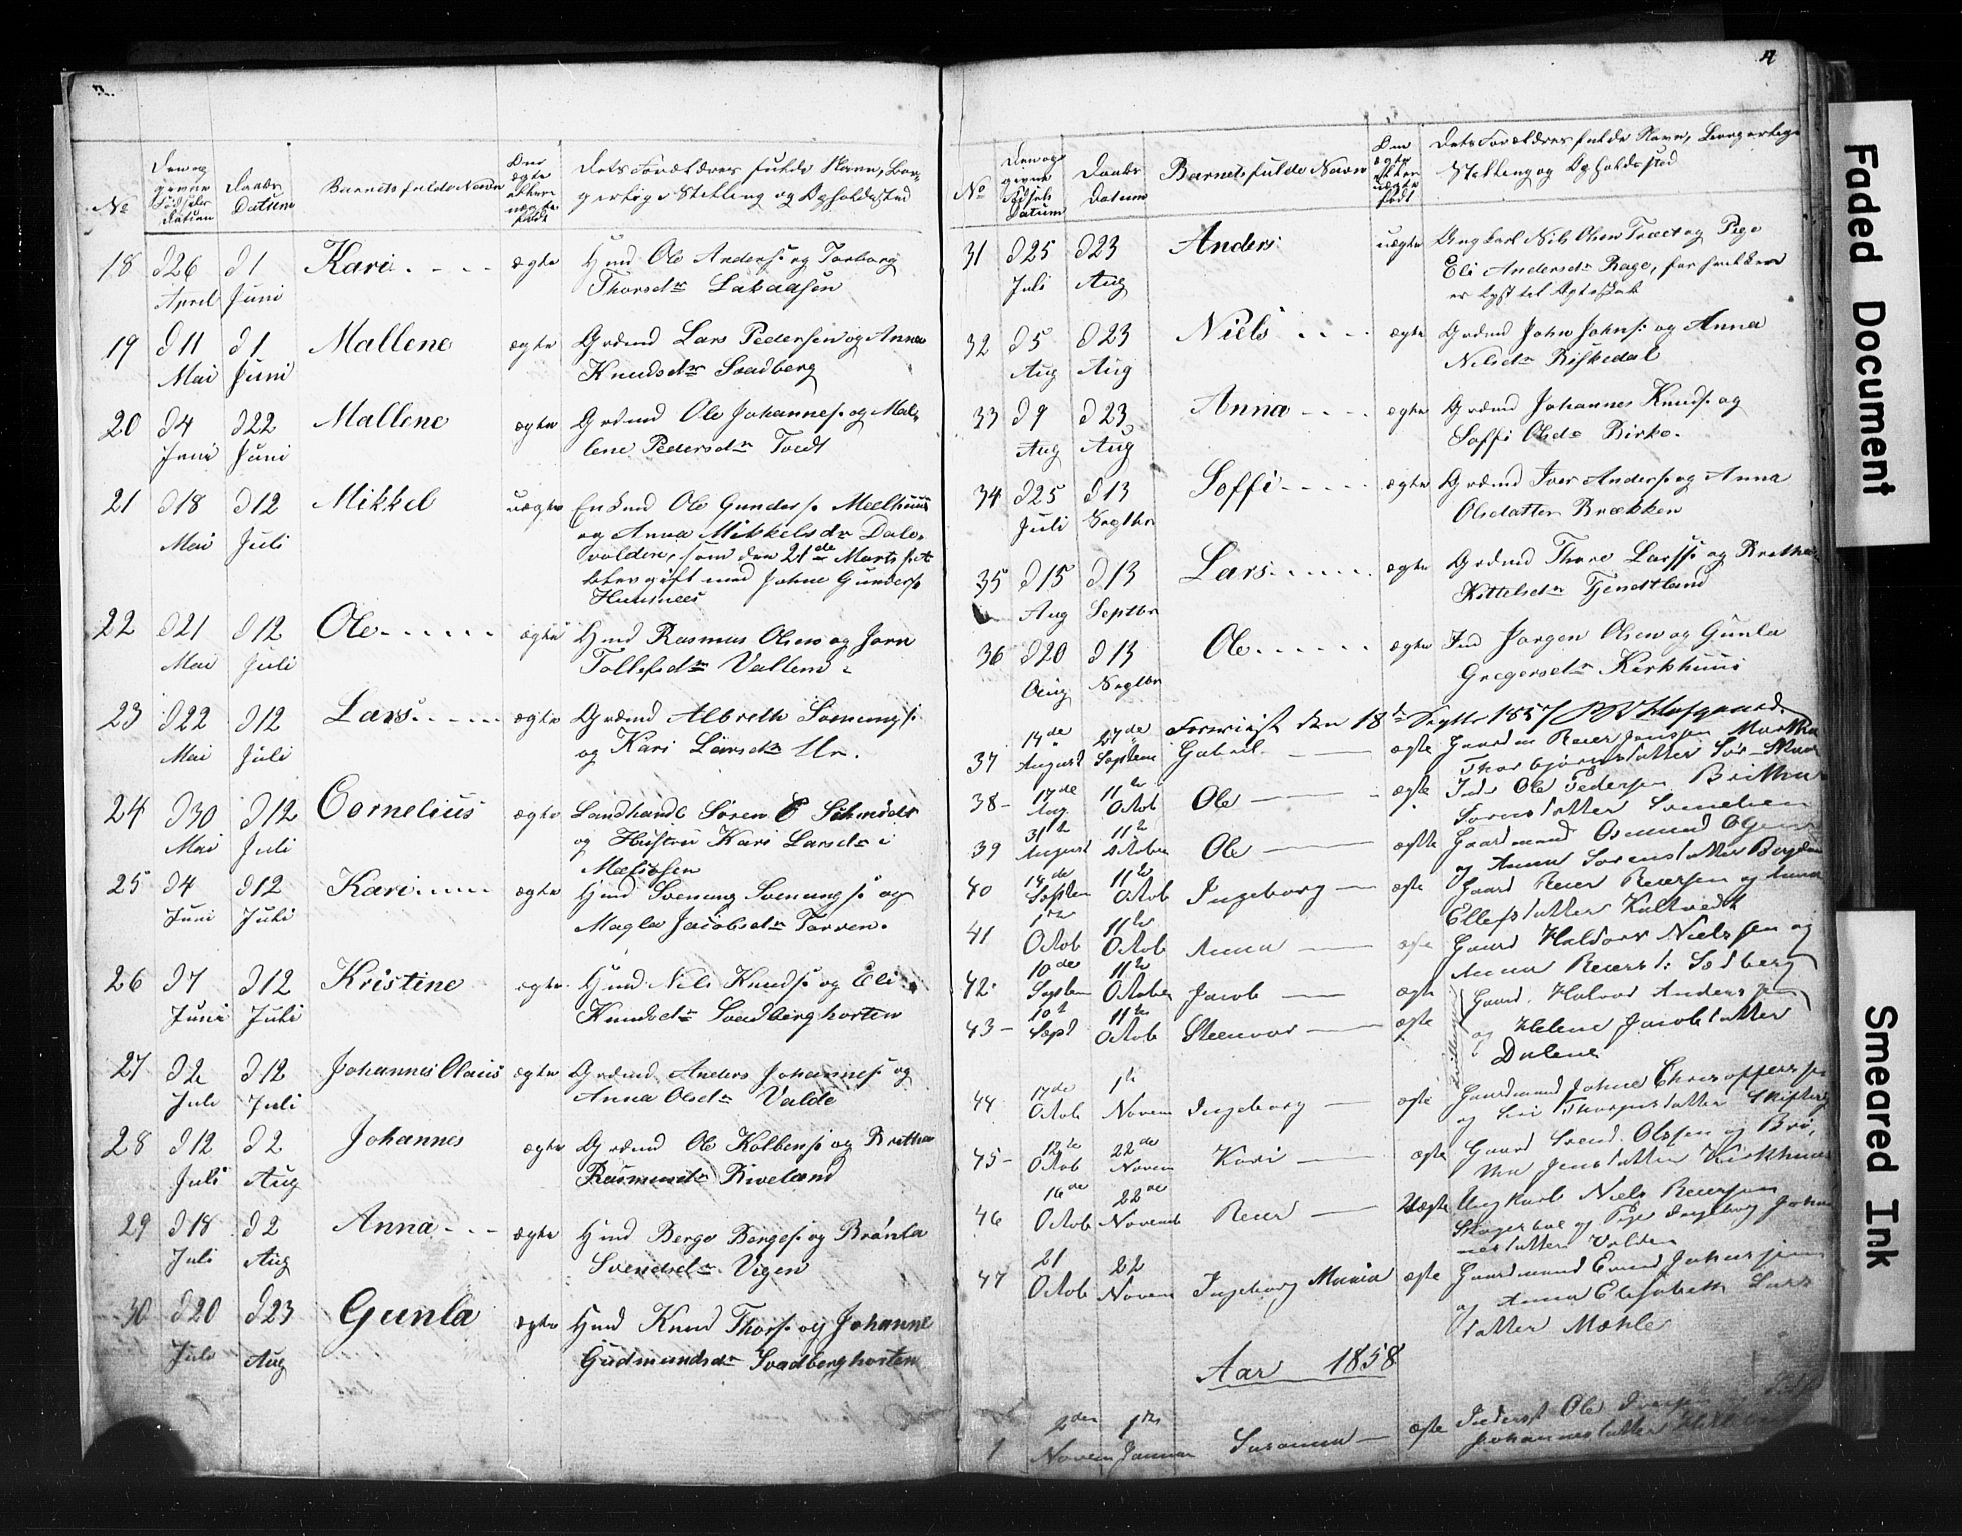 No
Den op
givne
Fødsels
Datum
Daabs
Datum
Barnets fulde Navn
Om
ægte
eller
uægte
født
Dets Forældres fulde Navn, Bor-
gerlige Stilling og Opholdssted
18 d 26 April d 1 Juni Kari ægte Hmd Ole Anders: og Torborg
Thorsdr Lakaasen
19 d 11 Mai d 1 Juni Mallene ægte Grdmd Lars Pedersen og Anna
Knudsdr Svadberg
20 d 4 Juni d 22 Juni Mallene ægte Grdmd Ole Johannes: og Mal-
lene Pedersdr Tvedt
21 d 18 Mai d 12 Juli Mikkel uægte Enkmd Ole Gunders: Meelhuus
og Anna Mikkelsdr Dale-
volden, som den 21de Marts
blev gift med John Gunders:
22 d 21 Mai d 12 Juli Ole ægte Hmd Rasmus Olsen og Jorn
Tollefsdr Vatlend
23 d 22 Mai d 12 Juli Lars ægte Grdmd Albreth Sonnungs:
og Kari Larsdr Ur.
24 d 30 Mai d 12 Juli Cornelius ægte Landhandl Søren Schmidt
og Hustru Kari Larsdr i
25 d 4 Juni d 12 Juli Kari ægte Hmd Svenung Svenungs: og
Magla Jacobsdr Torven.
26 d 7 Juni d 12 Juli Kristine ægte Hmd Nils Knuds: og Eli
Knudsdr Svadberghorten
27 d 2 Juli d 12 Juli Johannes Olaus ægte Grdmd Anders Johannes: og
Anna Olsdr Valde
28 d 12 Juli d 2 Aug Johannes ægte Grdmd Ole Kolbens: og Britha
Rasmusdr Riveland
29 d 18 Juli d 2 Aug Anna ægte Hmd Berge Berges: og Brønla
Svendsdr Vigen
30 d 20 Juli d 23 Aug Gunla ægte Hmd Knud Thors: og Johanne
Gudmundsdr Svadberghorten
No
Den op
givne
Fødsels
Datum
Daabs
Datum
Barnets fulde Navn
Om
ægte
eller
uægte
født
Dets Forældres fulde Navn, Borgerlige
Stilling og Opholdssted
31 d 25 Juli d 23 Aug Anders uægte Ungkarl Nils Olsen og Pige
Eli Andersdr Rage,
er lyst til Ægteskab
32 d 5 Aug d 23 Aug Niels ægte Grdmd John Johns: og Anna
Nilsdr Riskedal
33 d 9 Aug d 23 Aug Anna ægte Grdmd Johannes Knuds: og
Soffi Olsdr Birke.
34 d 25 Juli d 13 Septbr Soffi ægte Grdmd Iver Anders: og Anna
Olsdatter Brækken
35 d 15 Aug d 13 Septbr Lars ægte Grdmd Thore Larss: og Britha
Kittelsdr Tjendtland
36 d 20 Aug d 13 Septbr Ole ægte Ind Jørgen Olsen og Gunla
Gregersdr Kirkhuus
den 18de Septbr 1857
37 14de August 27de Septem Gabriel ægte Gaardm Reier Jensen Martha
Thorbjørnsdatter
38 17de Aug 11te Octob Ole ægte Ole Pedersen Britha
Sørensdatter
39 31te August 11te Octobr Ole ægte Gaardmand Osmund
og Anna Sorensdatter
40 14de Septem 11te Octob Ingeborg ægte Gaard Reier Reiersen og Anna
Ellefsdatter Kaltvedt
41 1te Octob 11te Octob Anna ægte Gaard Haldor Nielssen og
Anna Reiersd: Sædberg
42 10de Septem 11te October Jacob ægte Gaard. Halvor Anderssen
43 10de Sept 11te Octob Steenvor ægte og Helene Jacobsdatter
Dalene
Tvillinger
44 17de Octob 1te Novem Ingeborg ægte Gaardmand Johne Christophersen
og Siri
45 12te Octob 22de Novem Kari ægte Gaard Svend Olssen og Bri-
tha Jensdatter Kirkhuus
46 16de Octob 22de Novemb Reier Uægte Ungkarl Niels Reiersen
og Pige Ingeborg Johan
nesdatter Valde
47 21 Octob 22 Novem Ingeborg Maria ægte Gaardmand Evend Johnssen
og Anna Elisabeth Lars
datter Mæhle
Aar 1858
1 2den Novem 1te Januar Susanna ægte Ole Iversen
Johannesdatter
Faded Document
Smeared Ink